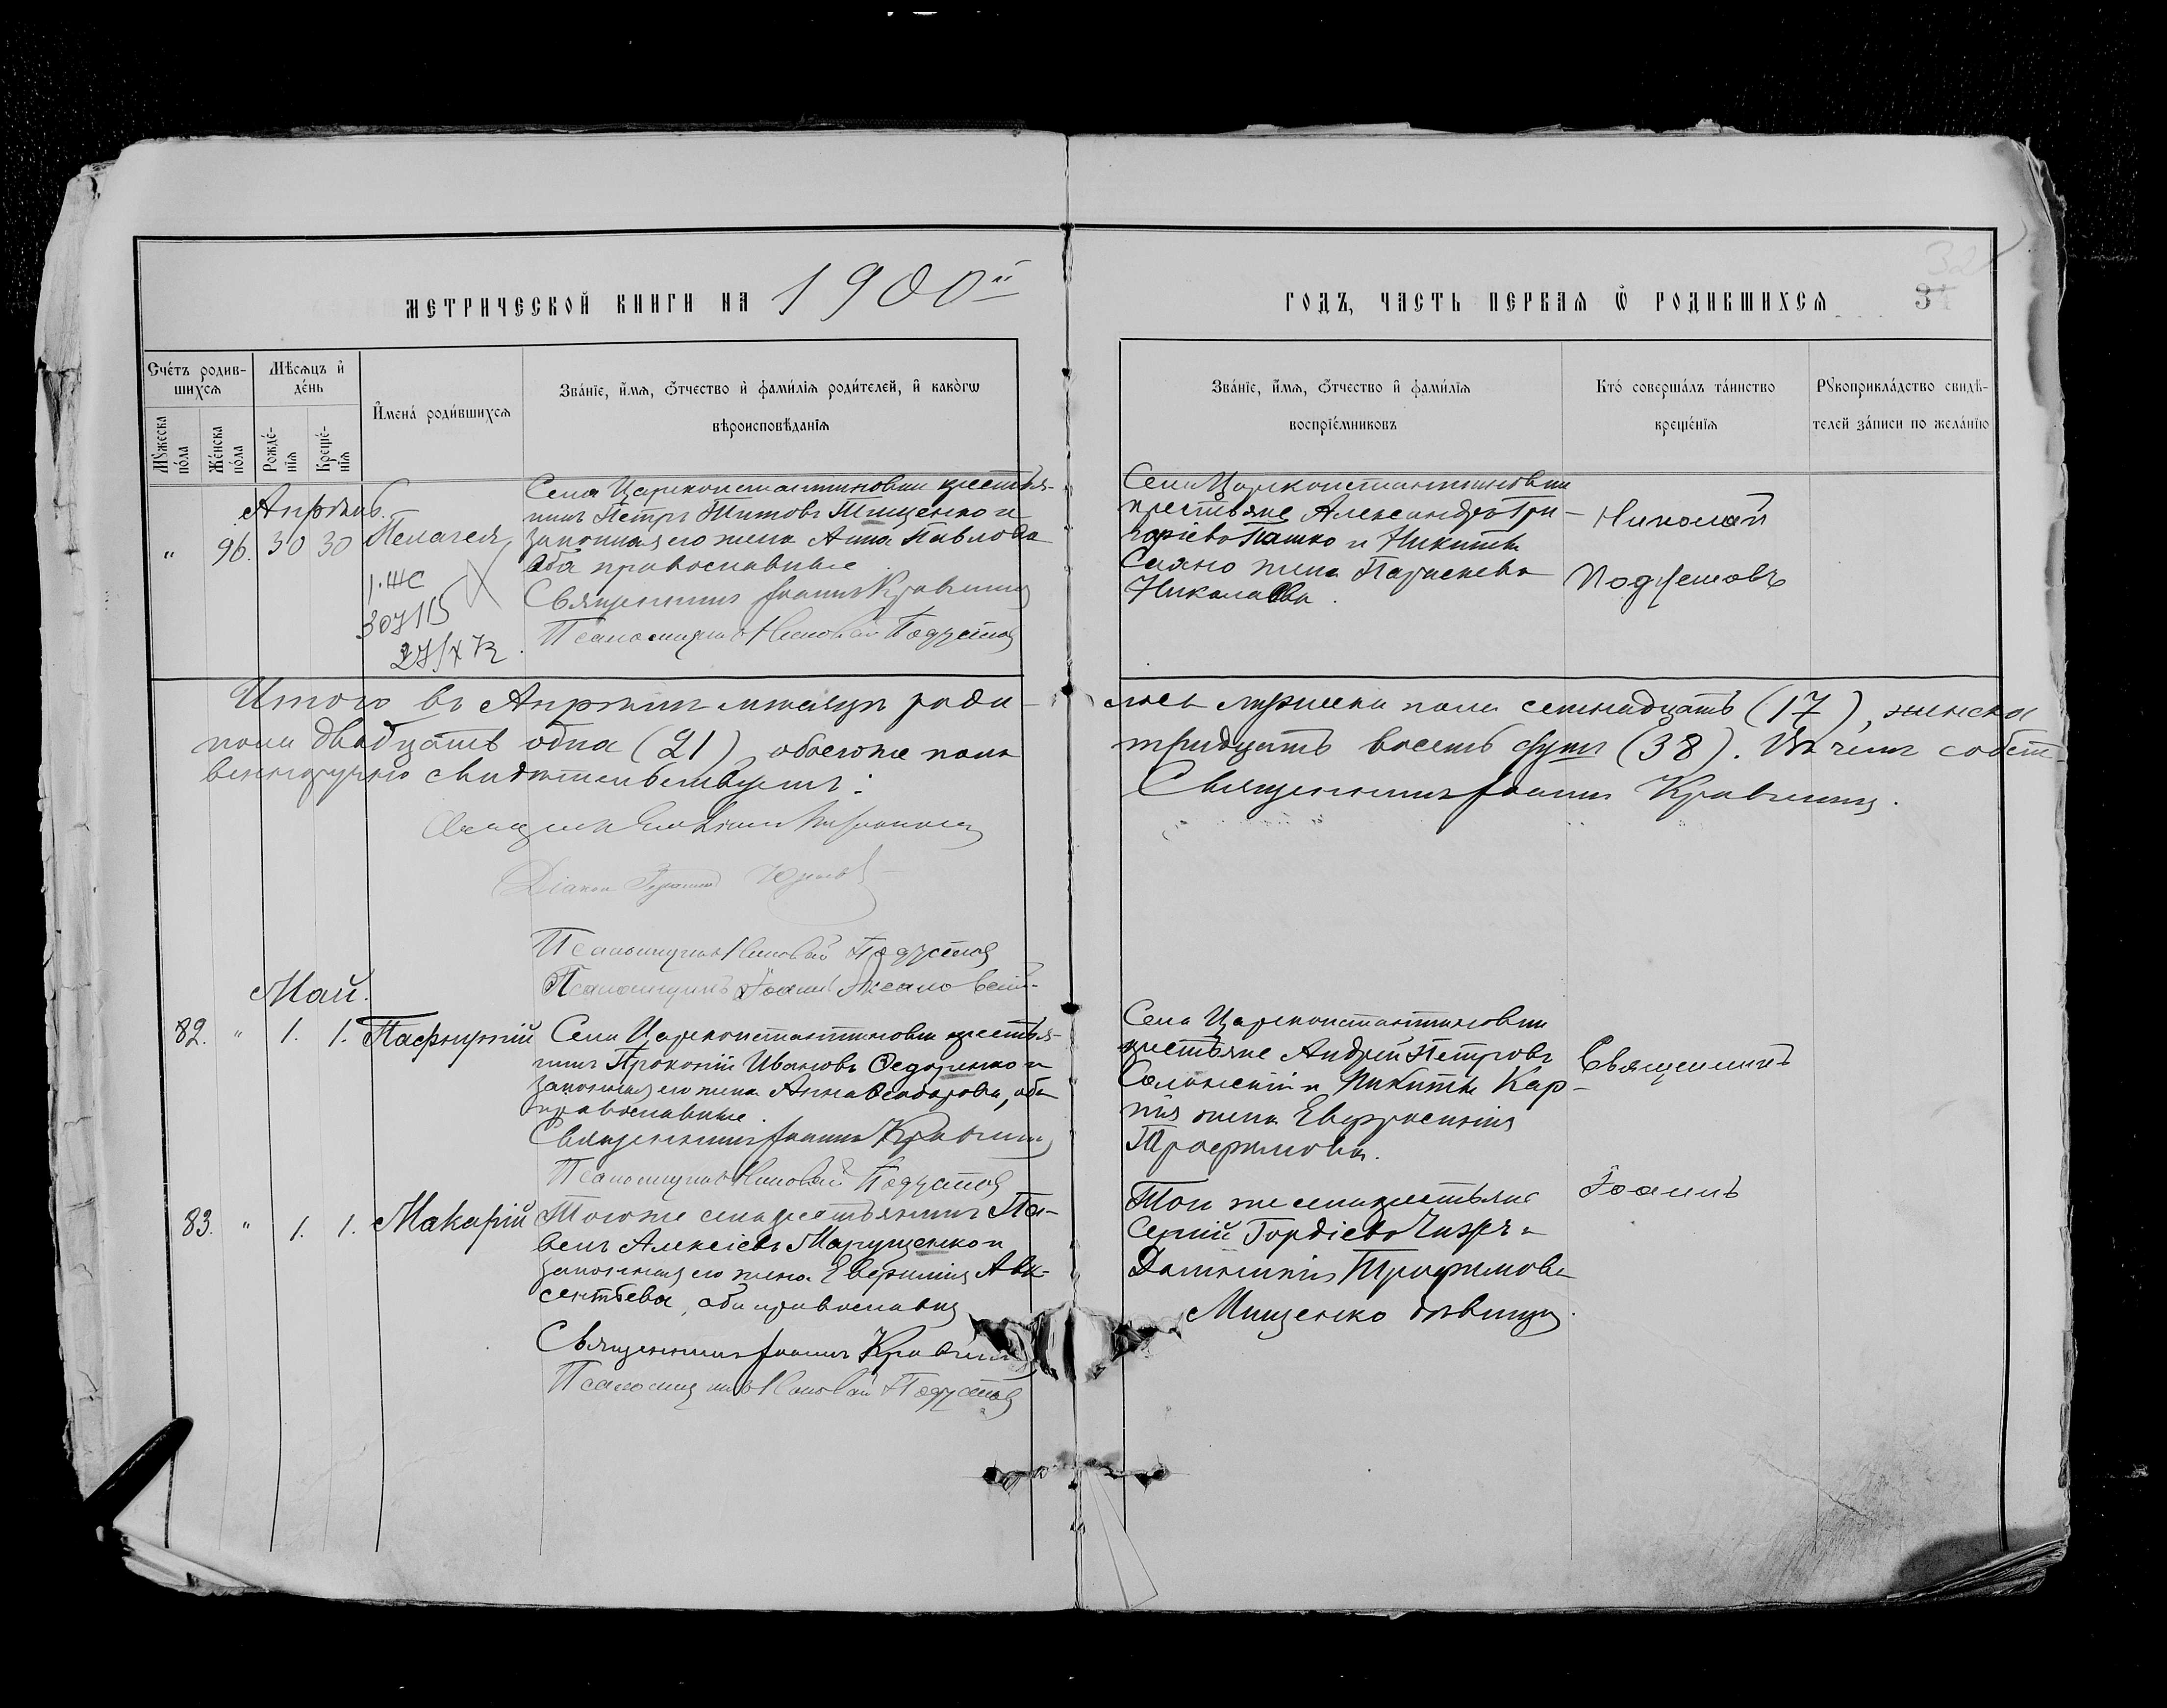 МЕТРИЧЕСКОЙ КНИГИ НА 1900й
ГОДЪ, ЧАСТЬ ПЕРВАЯ Ѡ РОДИВШИХСЯ
32
34
Сче́тъ родив-
шихсѧ
Мѣ́сяцъ и҆
де́нь
И҆мена̀ роди́вшихсѧ
Зва́нїе, и҆́мѧ, ѻ҆́тчество и҆ фами́лїѧ роди́телей, и҆ како́гѡ
вѣроисповѣ́данїѧ
Мꙋ́жеска
по́ла
Же́нска
по́ла
Рожде́-
нїѧ
Креще́-
нїѧ
Зва́нїе, и҆́мѧ, ѻ҆́тчество и҆ фами́лїѧ
воспрїе́мниковъ
Кто̀ соверша́лъ та́инство
креще́нїѧ
Рꙋкоприкла́дство свидѣ́-
телей за́писи по жела́нїю
Апрѣль.
" 96. 30 30 Пелагея
Села Цареконстантиновки крестья-
нинъ Петръ Титовъ Мищенко и
законная его жена Анна Павлова
оба православные
Священникъ Іоаннъ Кравчина
Псаломщикъ Николай
Села Цареконстантиновки
крестьяне Александръ Гри-
горіевъ Пашко и Никиты
жена Параскева
Николаева.
Николай
Итого въ Апрѣлѣ мѣсяцѣ роди-
лось мужеска пола семнадцать (17), женска
пола двадцать одна (21), обоего же пола
тридцать восемь душъ (38). Въ чемъ собст-
венноручно свидѣтельствуемъ:
Священникъ Іоаннъ Кравчина.
Діакон
Псаломщикъ Николай
Псаломщикъ Іоаннъ
Май.
82. " 1. 1. Пафнутій
Села Цареконстантиновки крестья-
нинъ Прокопій Ивановъ Федоренко и
законная его жена Анна Ѳеодорова, оба
православные.
Священникъ Іоаннъ Кравчина
Псаломщикъ Николай
Села Цареконстантиновки
крестьяне Андрей Петровъ
и Никиты Кар-
жена Евфросинія
Трофимова.
Священникъ
83. " 1. 1. Макарій
Того же села крестьянинъ Па-
велъ Алексіевъ Марущенко и
законная его жена Евфимія Авк-
сентьева, оба православны
Священникъ Іоаннъ Кравчина
Псаломщикъ Николай
Того же села крестьяне
Сергій Гордіевъ и
Трофимова
Мищенко дѣвица.
Іоаннъ